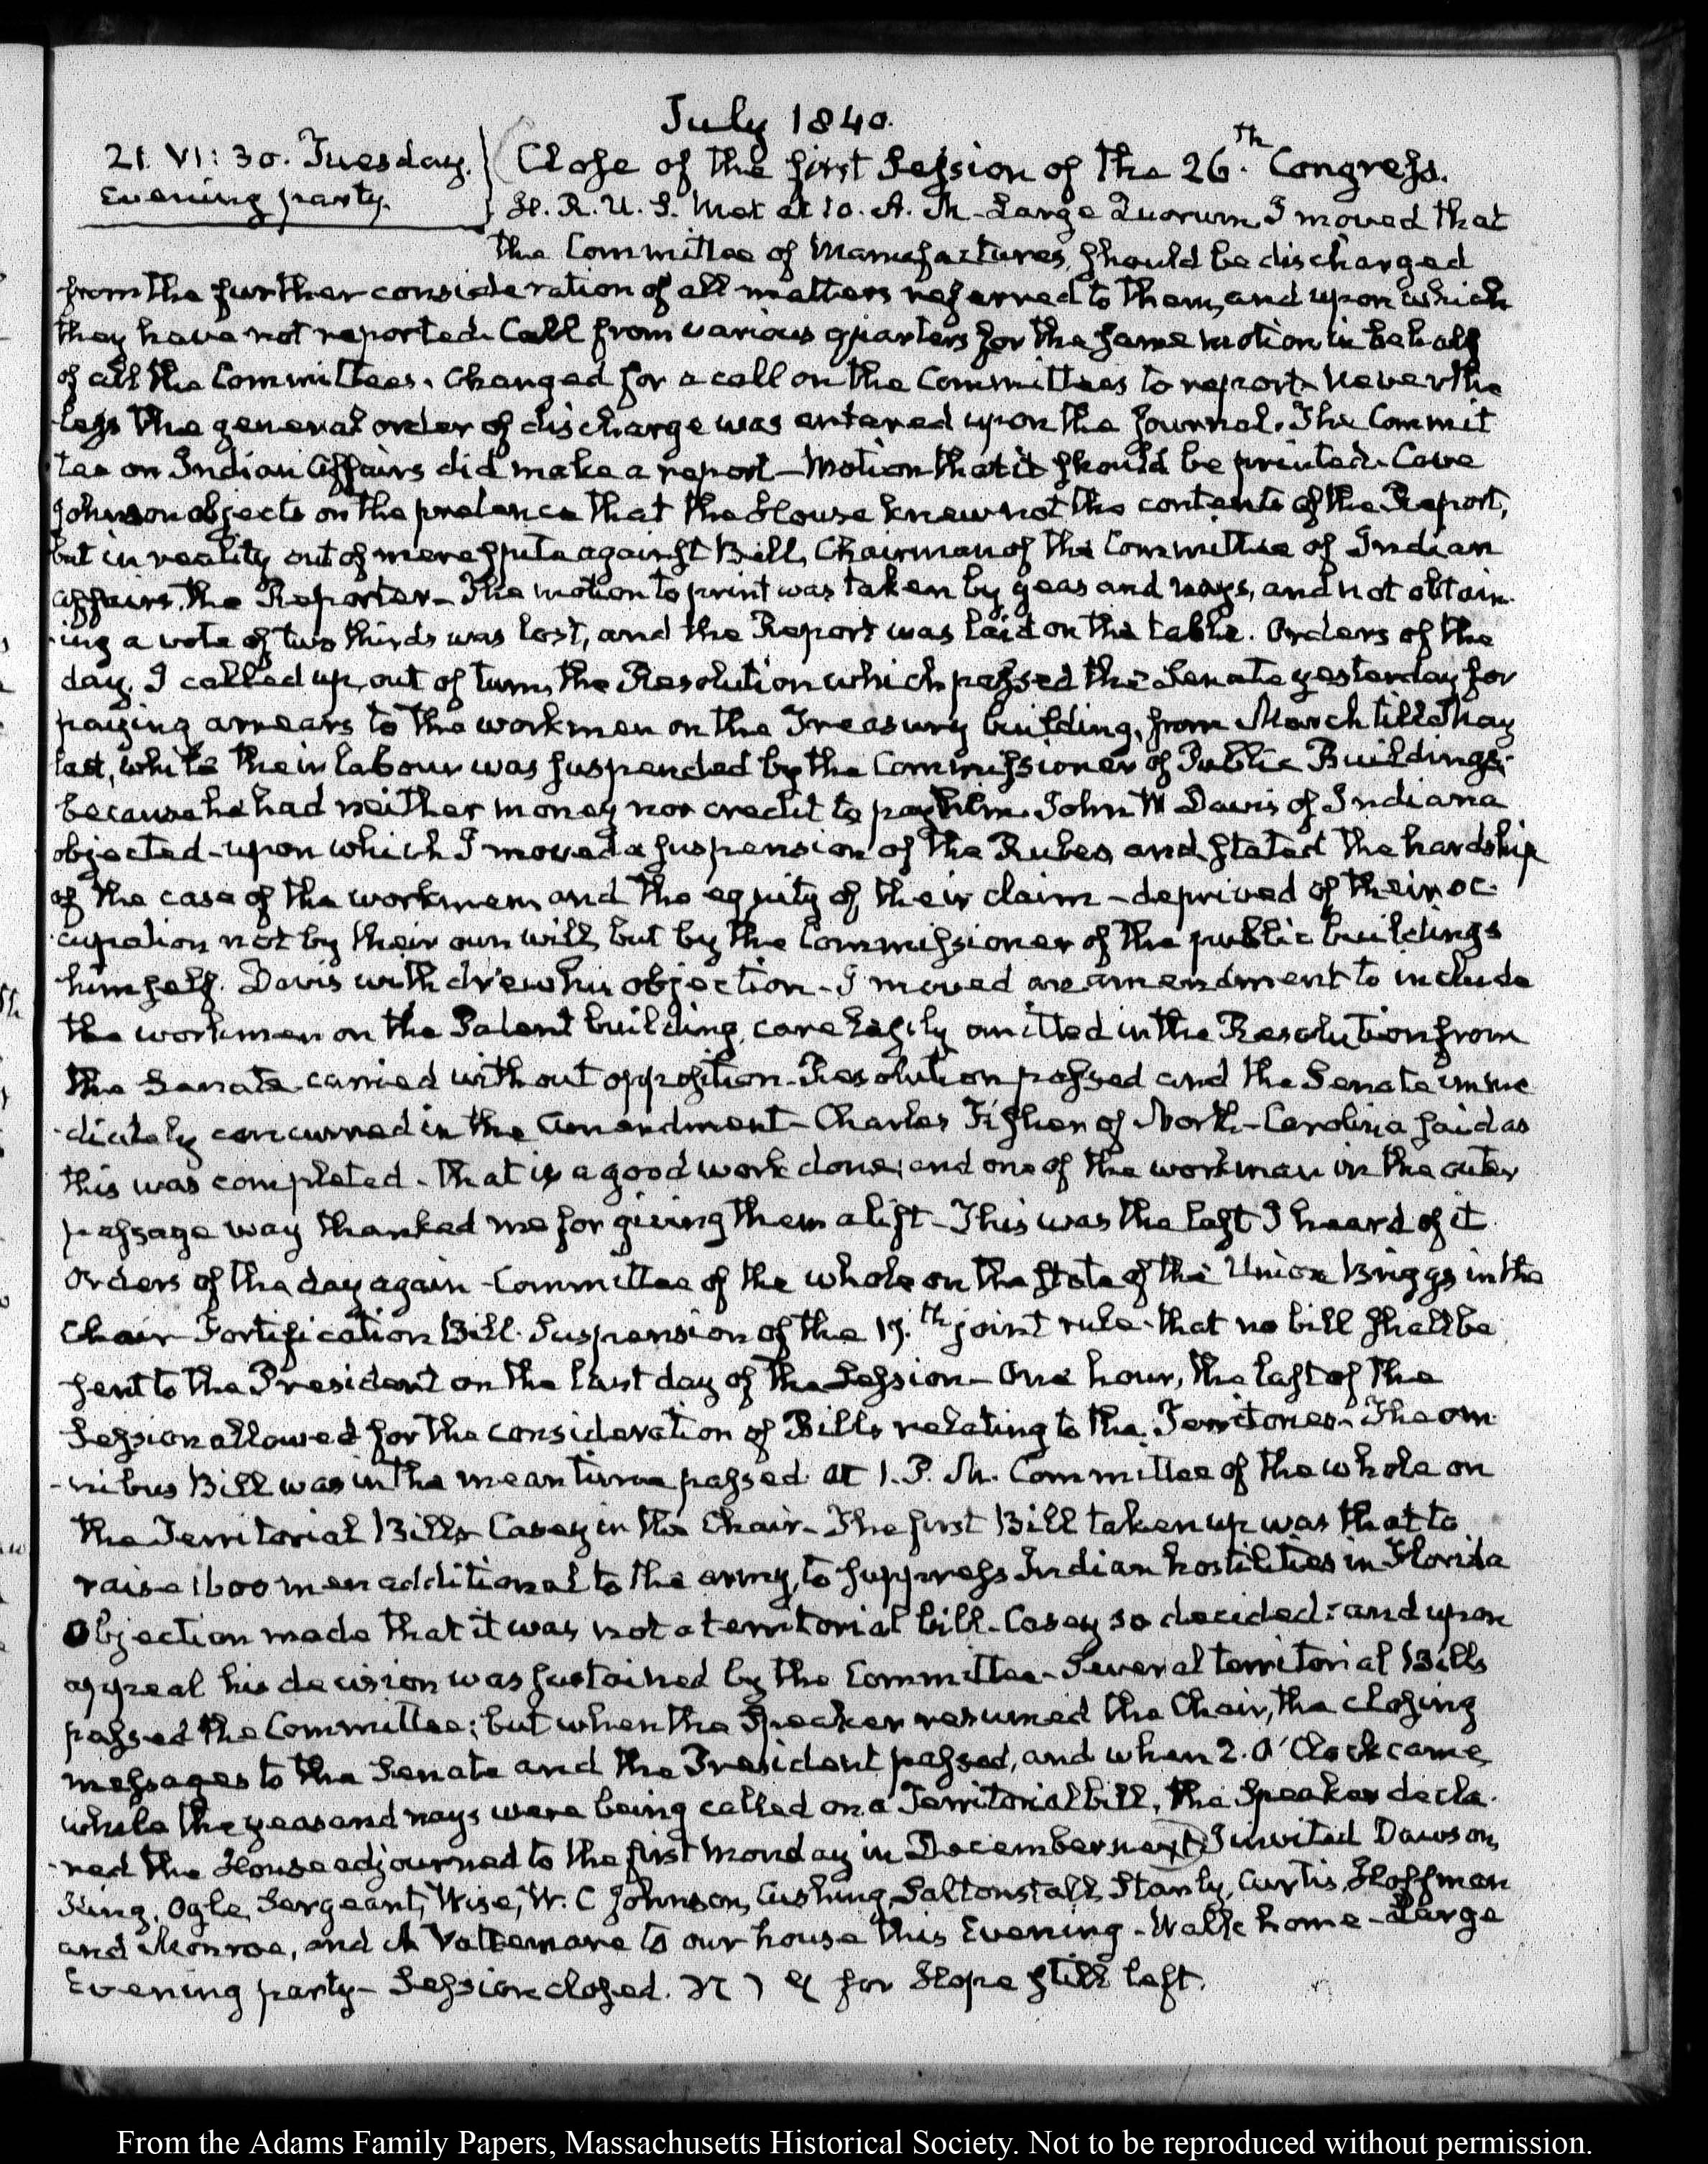 July 1840.
21. VI: 30. Tuesday. Close of the first Session of the 26.th Congress.
Evening party. H. R. U. S. Met at 10. A. M. Large Quorum I moved that
the Committee of Manufactures, should be discharged
from the further consideration of all matters referred to them, and upon which
they have not reported. Call from various quarters for the same motion in behalf
of all the Committees. Changed for a call on the Committees to report. Neverthe
less the general order of discharge was entered upon the Journal. The Commit
tee on Indian Affairs did make a report—Motion that it should be printed. Cave
Johnson objects on the pretence that the House knew not the contents of the Report,
but in reality out of mere spite against Bell, Chairman of the Committee of Indian
affairs, the Reporter—The motion to print was taken by yeas and nays, and not obtain-
ing a vote of two thirds was lost, and the Report was laid on the table. Orders of the
day. I called up, out of turn, the Resolution which passed the Senate yesterday for
paying arrears to the workmen on the Treasury building, from March till May
last, while their labour was suspended by the Commissioner of Public Buildings;
because he had neither money nor credit to pay them. John W Davis of Indiana
objected—upon which I moved a suspension of the Rules, and stated the hardship
of the case of the workmen, and the equity of their claim—deprived of their oc-
cupation not by their own will, but by the Commissioner of the public buildings
himself. Davis withdrew his objection—I moved an amendment to include
the workmen on the Patent building, carelessly omitted in the Resolution from
the Senate—carried without opposition—Resolution passed and the Senate imme
-diately concurred in the Amendment—Charles Fisher of North-Carolina said as
this was completed—that is a good work done; and one of the workmen in the outer
passage way thanked me for giving them a lift—This was the last I heard of it
Orders of the day again—Committee of the whole on the state of the Union Briggs in the
Chair—Fortification Bill. Suspension of the 17.th joint rule—that no bill shall be
sent to the President on the last day of the Session—One hour, the last of the
Session allowed for the consideration of Bills relating to the Territories—The om
-nibus Bill was in the mean time passed. At 1. P. M. Committee of the whole on
the Territorial Bills Casey in the Chair—The first Bill taken up was that to
raise 1600 men additional to the army, to suppress Indian hostilities in Florida
Objection made that it was not a territorial bill—Casey so decided: and upon
appeal his decision was sustained by the Committee—Several territorial Bills
passed the Committee; but when the Speaker resumed the Chair, the closing
messages to the Senate and the President passed, and when 2. O'Clock came,
while the yeas and nays were being called on a Territorial bill, the Speaker decla-
-red the House adjourned to the first Monday in December next. I invited Dawson,
King, Ogle, Sergeant, Wise, W. C Johnson, Cushing, Saltonstall, Stanly, Curtis, Hoffman
and Monroe, and A Vattemare to our house this Evening—Walk home—Large
Evening party—Session closed. for Hope still left.